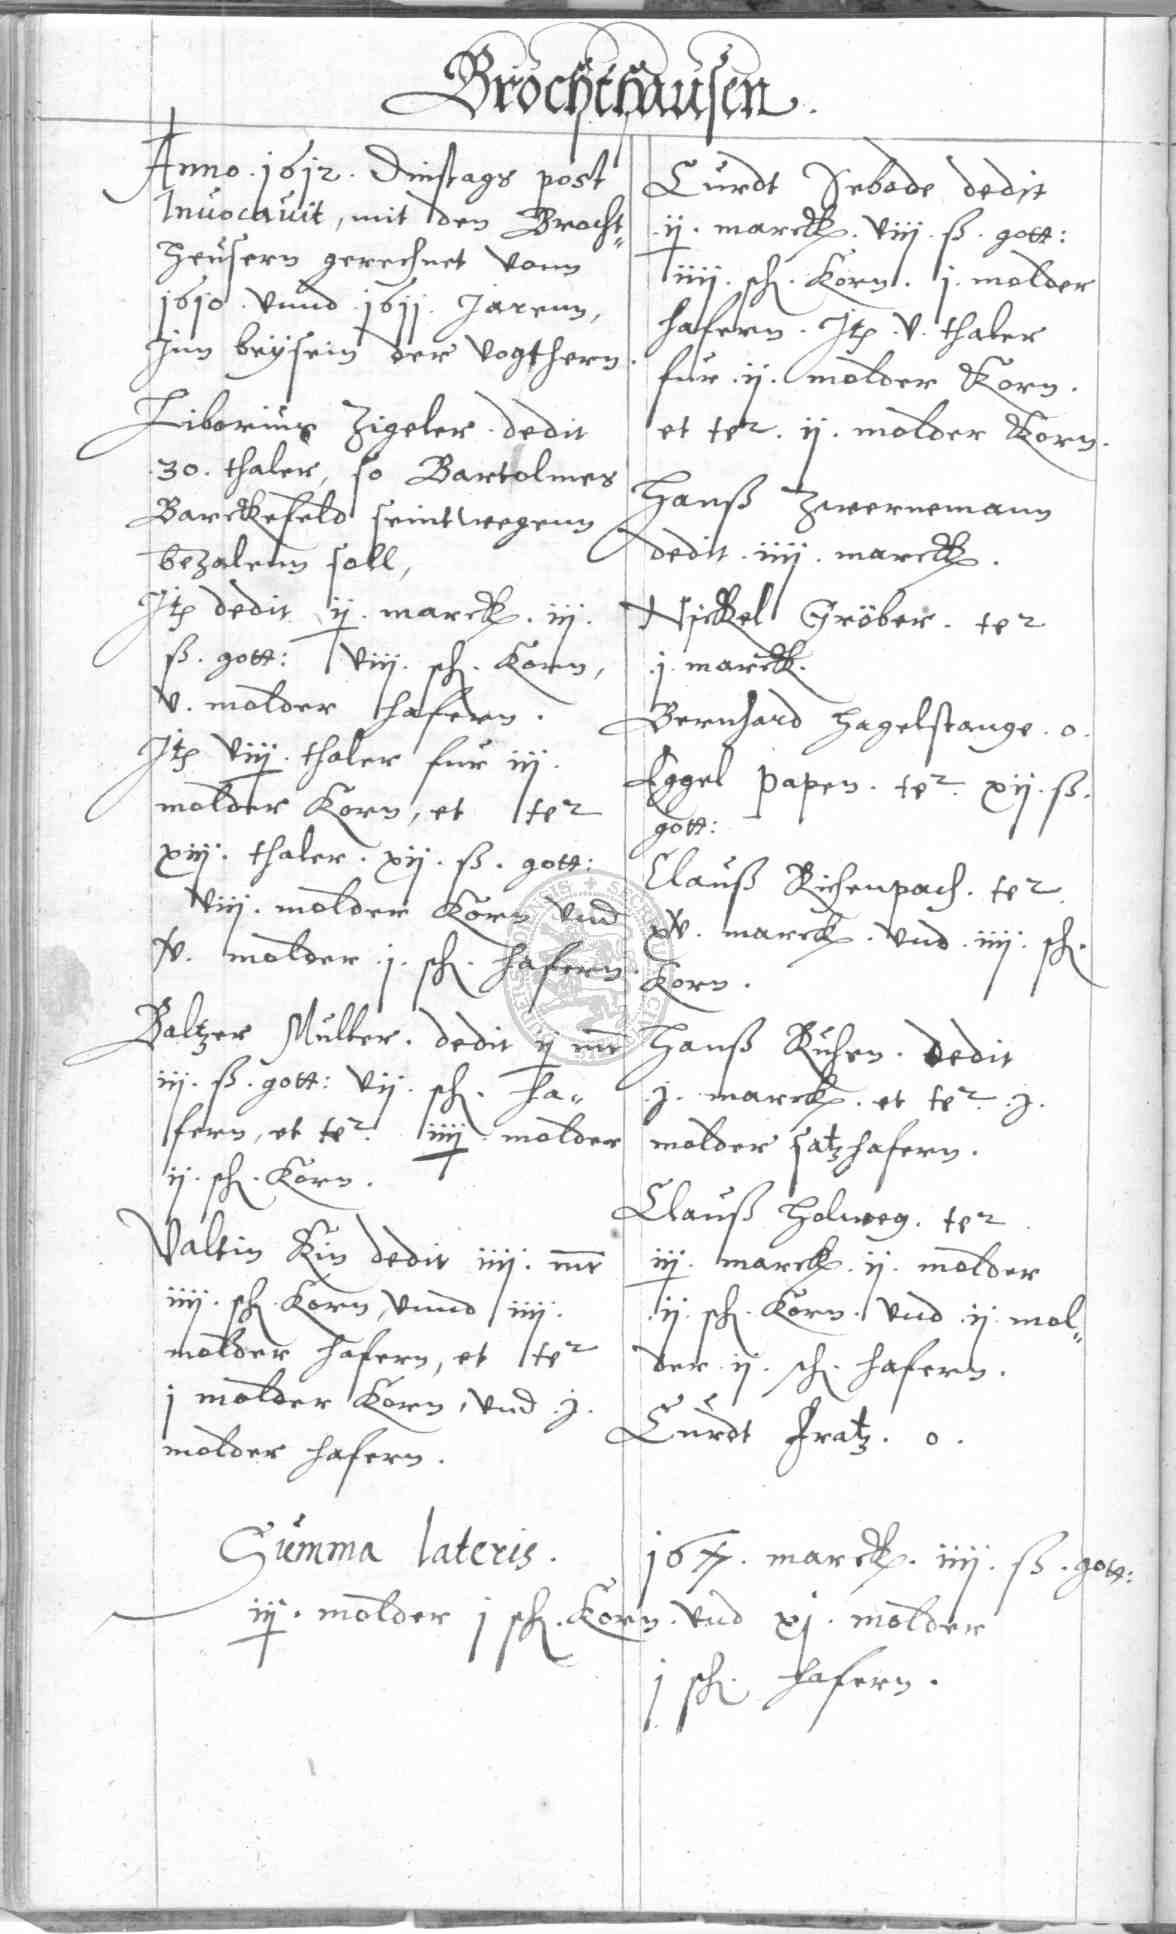 Brochthausen.
Anno . 1612 . Dinstags post
Invocavit, mit den Brocht„
heusern gerechnet vonn
1610 . vnnd . 1611 . Jarenn,
Jnn beÿsein der vogthern.
Liborius Zigeler . dedit
.30. thaler, so Bartolmes
Barckefeld seintwegenn
bezalenn soll,
Jtem dedit ij . marck . iij .
ß . gott: viij . sch . Korn,
v . molder hafern .
Jtem viij . thaler fur iij .
molder Korn, et tenetur
xiij . thaler . xij . ß . gott:
viij . molder Korn vnd
v . molder . j . sch . hafern .
Baltzer Muller . dedit ij mr
iij . ß . gott: vij . sch . ha„
fern, et tenetur . iiij . molder
ij . sch . Korn .
Valtin Kin dedit iiij . mr
iiij . sch . Korn, vnnd iiij .
molder hafern, et tenetur
j molder Korn, vnd . j .
molder hafern .
Curdt Sebode dedit
.ij . marck . viij . ß . gott:
iiij . sch . Korn . j . molder
hafern . Jtem . v . thaler
fur . ij . molder Korn .
et tenetur . ij . molder Korn .
Hanß Zwernemann
dedit . iiij . marck .
Nickel Gröber . tenetur
.j . marck .
Bernhard Hagelstange . o .
Eggel Papen . tenetur . xij . ß .
gott:
Clauß Richenpach . tenetur
xv . marck . vnd . iiij . sch .
Korn .
Hanß Kuhen . dedit
.j . marck . et tenetur . j .
molder satzhafern .
Clauß Holweg . tenetur
iij . marck . ij . molder
.ij . sch . Korn . vnd . ij . mol„
der . ij . sch . hafern .
Curdt Fratz . o .
Summa lateris .
marck . iiij . ß . gott:
iij . molder j sch . Korn . vnd xj . molder
j sch . hafern .